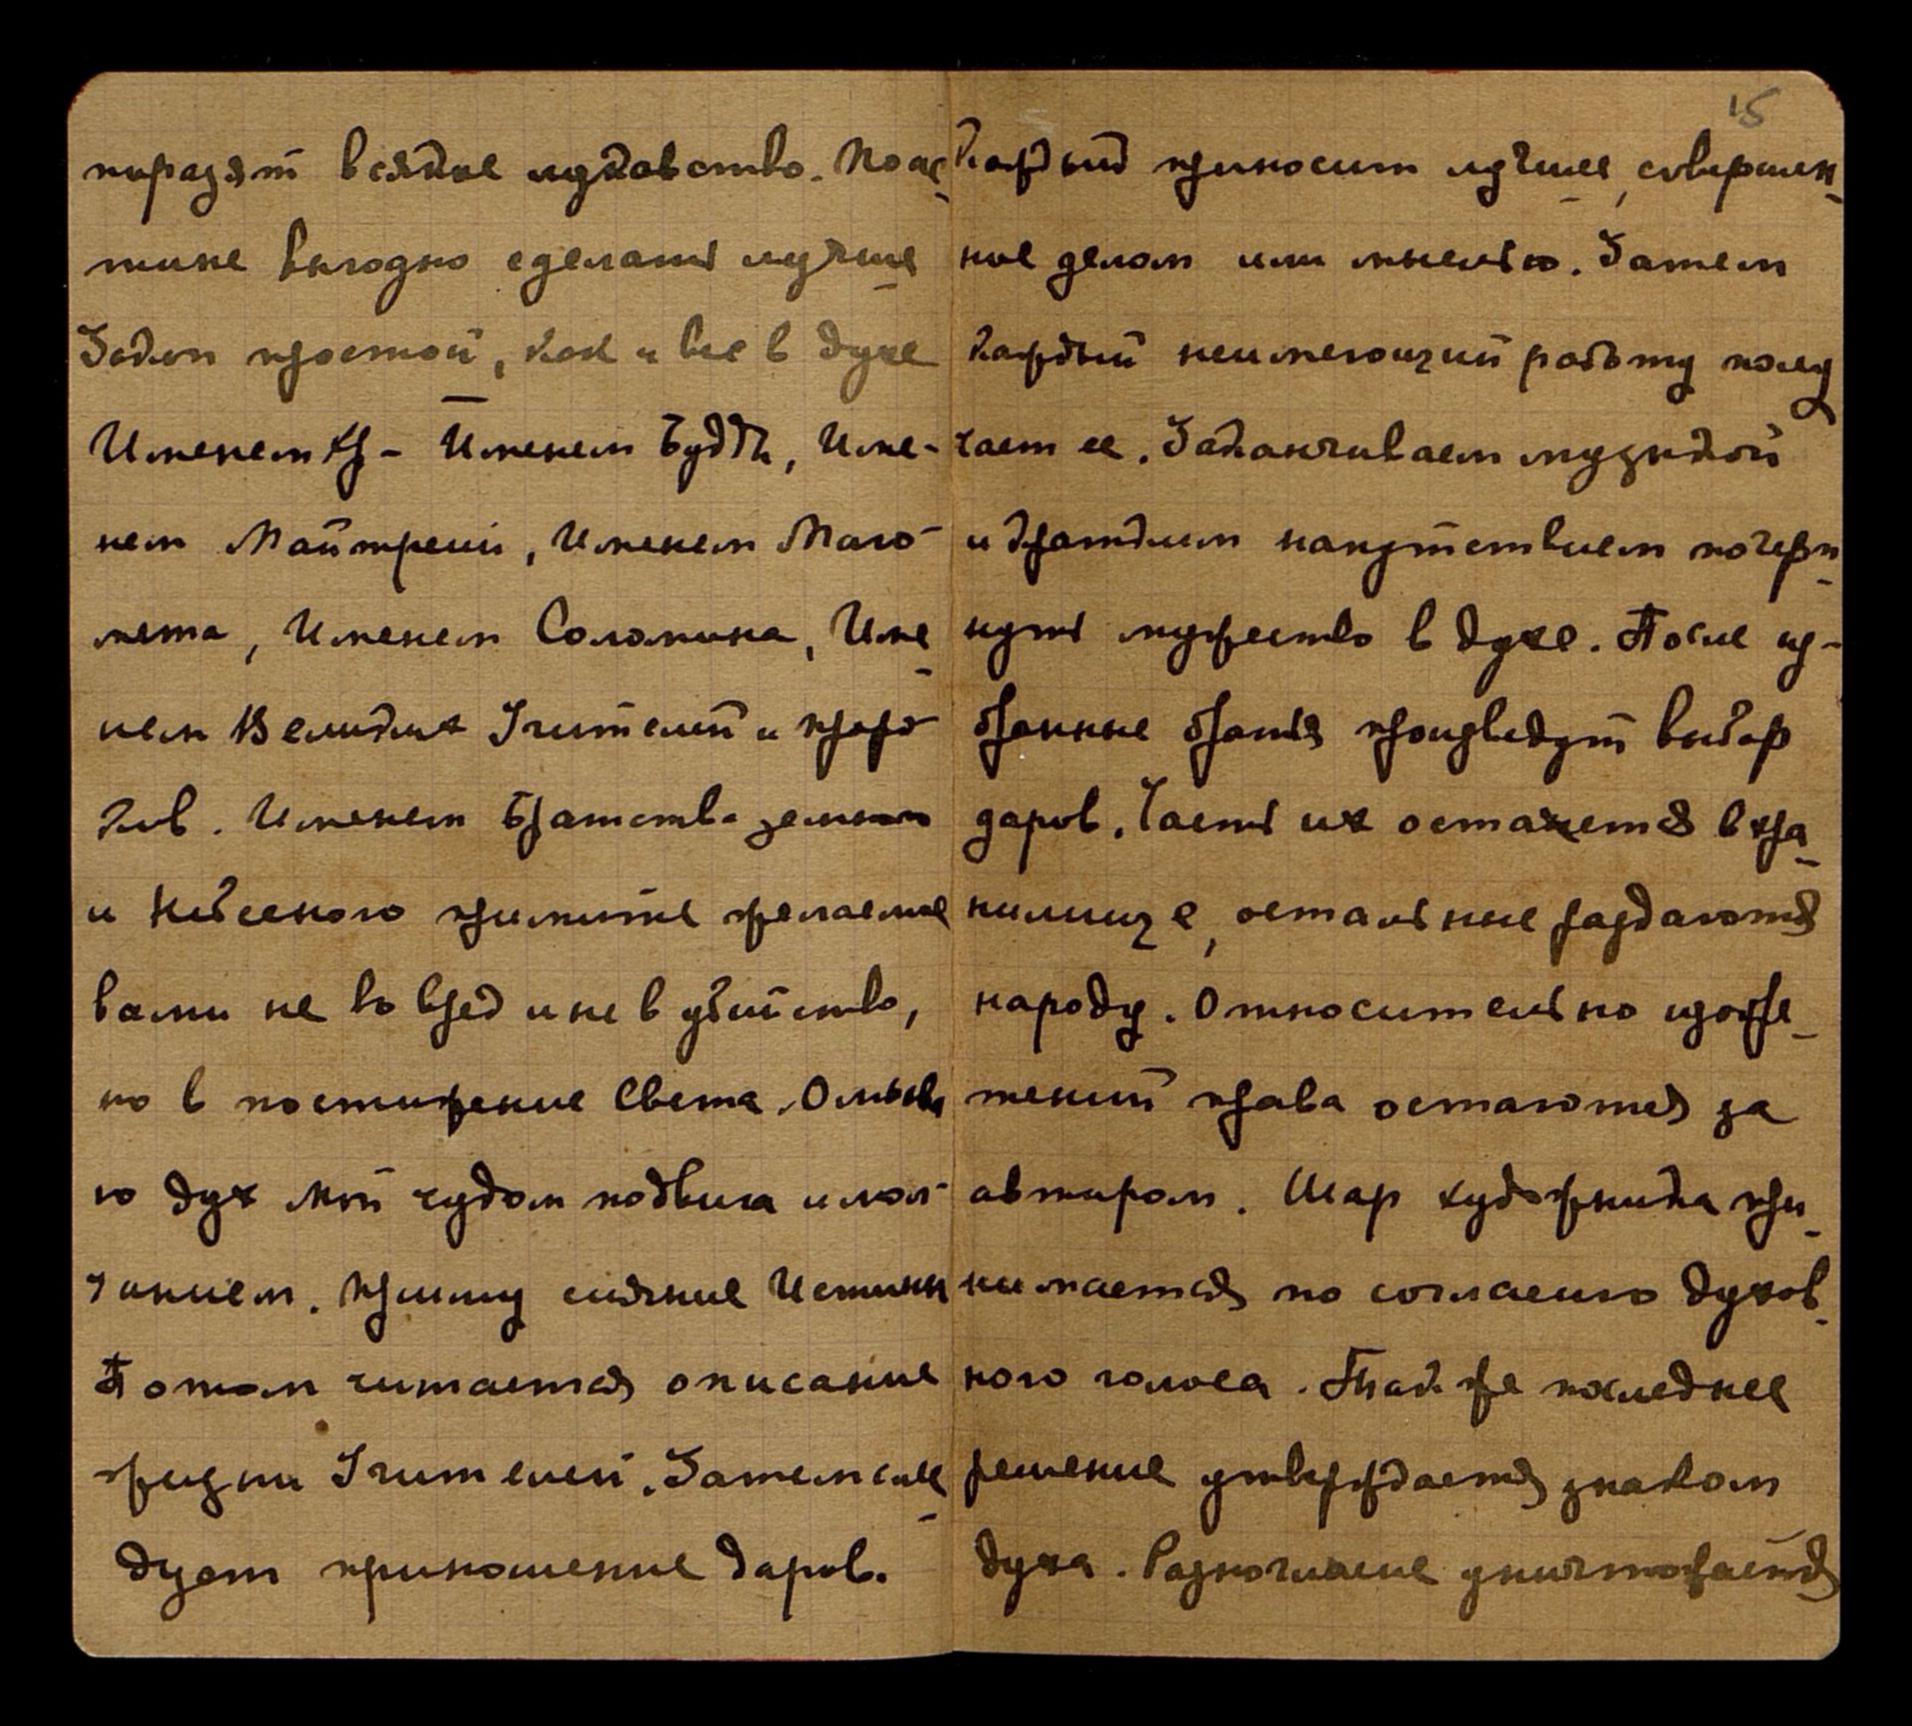 поразят всякое лукавство. Поис-
тине выгодно сделать лучше
Закон простой, как и все в духе
Именем Хр – Именем Будды, Име-
нем Майтреии, Именем Маго-
мета, Именем Соломина, Име-
нем Великих Учителей и проро-
ков. Именем Братства земного
и Небесного примите желаемое
вами не во вред и не в убийство,
но в постижение Света. Омываю
ю дух мой чудом подвига и мол-
чанием. Приму сияние Истины
Потом читается описание
жизни Учителей. Затем сле-
дует приношение даров.
15
Каждый приносит лучшее, совершен-
ное делом или мыслью. Затем
каждый неимеющий работу полу
чает ее. Заканчиваем музыкой
и кратким напутствием почерп-
нуть мужество в духе. После из-
бранные братья произведут выбор
даров. Часть их останется в хра-
нилище, остальные раздаются
народу. Относительно изобре-
тений права остаются за
автором. Шар художника при-
нимается по согласию духов-
ного голоса. Так же последнее
решение утверждается знаком
духа. Разногласие уничтожается